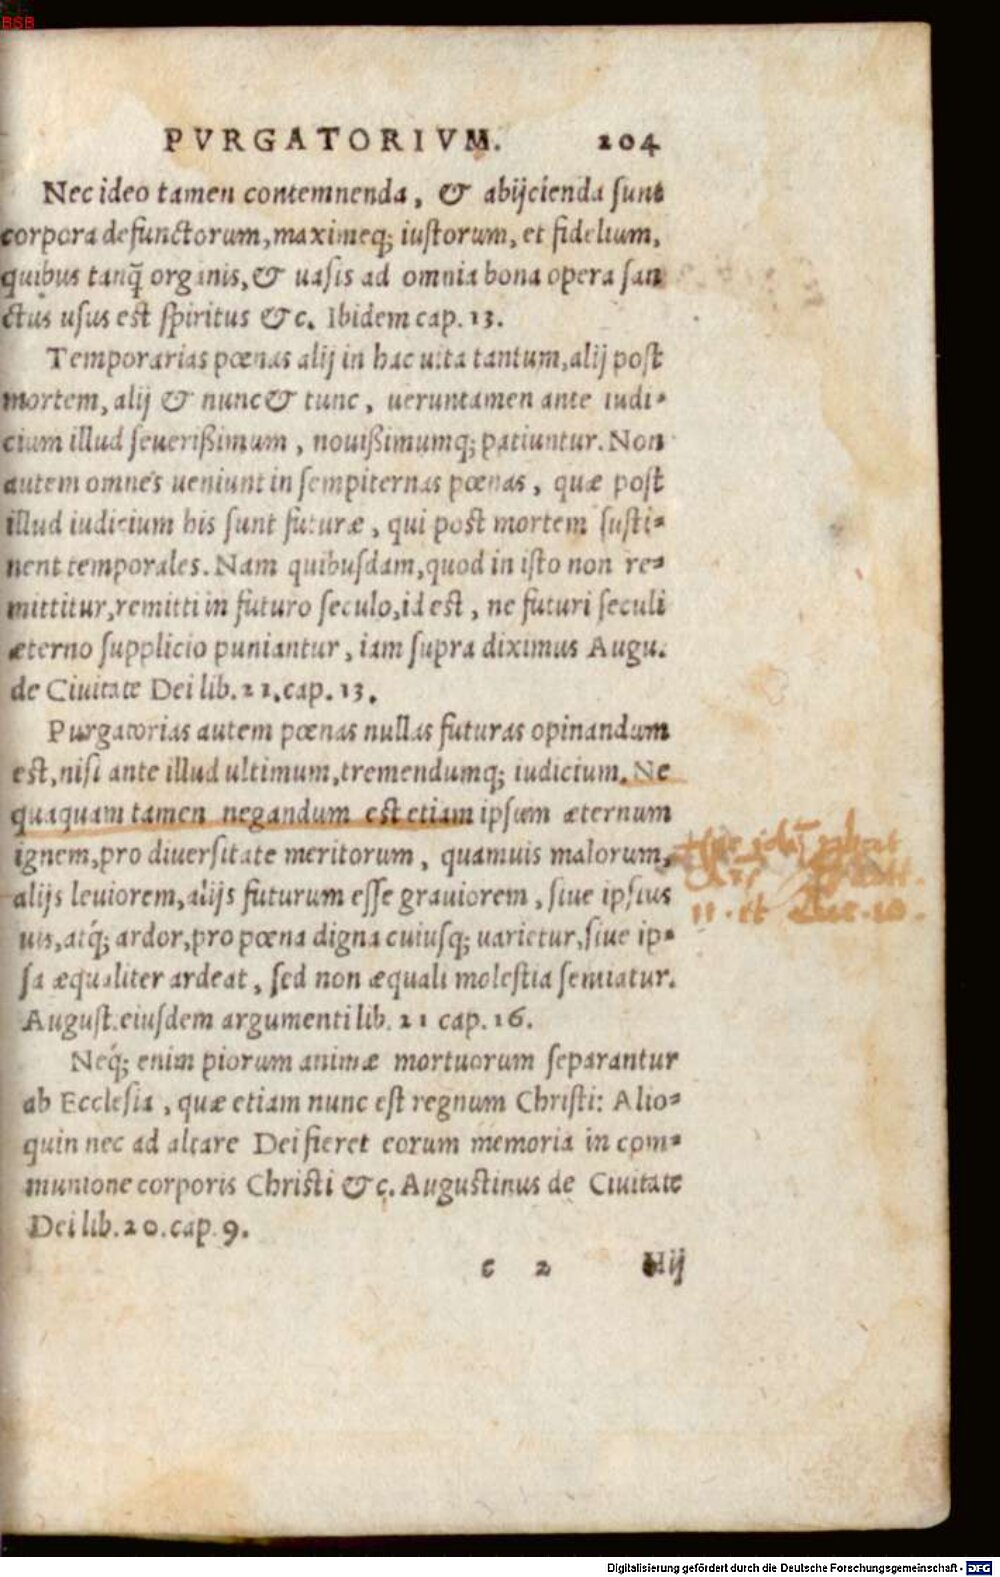 BSB
PVRGATORIVM. 204
Nec ideo tamen contemnenda, & abijcienda sunt
corpora defunctorum, maximeq; iustorum, et fidelium,
quibus tanq̃ organis, & uasis ad omnia bona opera san
ctus usus est spiritus &c. Ibidem cap. 13.
Temporarias pœnas alij in hac uita tantum, alij post
mortem, alij & nunc & tunc, ueruntamen ante iudi-
cium illud seuerißimum, nouißimumq; patiuntur. Non
autem omnes ueniunt in sempiternas pœnas, quæ post
illud iudicium his sunt futuræ, qui post mortem susti-
nent temporales. Nam quibusdam, quod in isto non re-
mittitur, remitti in futuro seculo, id est, ne futuri seculi
æterno supplicio puniantur, iam supra diximus Augu.
de Ciuitate Dei lib. 21. cap. 13.
Purgatorias autem pœnas nullas futuras opinandum
est, nisi ante illud ultimum, tremendumq; iudicium. Ne
quaquam tamen negandum est etiam ipsum æternum
ignem, pro diuersitate meritorum, quamuis malorum,
alijs leuiorem, alijs futurum esse grauiorem, siue ipsius
uis, atq́; ardor, pro pœna digna cuiusq; uarietur, siue ip-
sa æqualiter ardeat, sed non æquali molestia sentiatur.
August. eiusdem argumenti lib. 21 cap. 16.
11. et Luc. 10.
Neq́; enim piorum animæ mortuorum separantur
ab Ecclesia, quæ etiam nunc est regnum Christi: Alio-
quin nec ad altare Dei fieret eorum memoria in com-
munione corporis Christi &c. Augustinus de Ciuitate
Dei lib. 20. cap. 9.
c 2 Hij
Digitalisierung gefördert durch die Deutsche Forschungsgemeinschaft - DFG